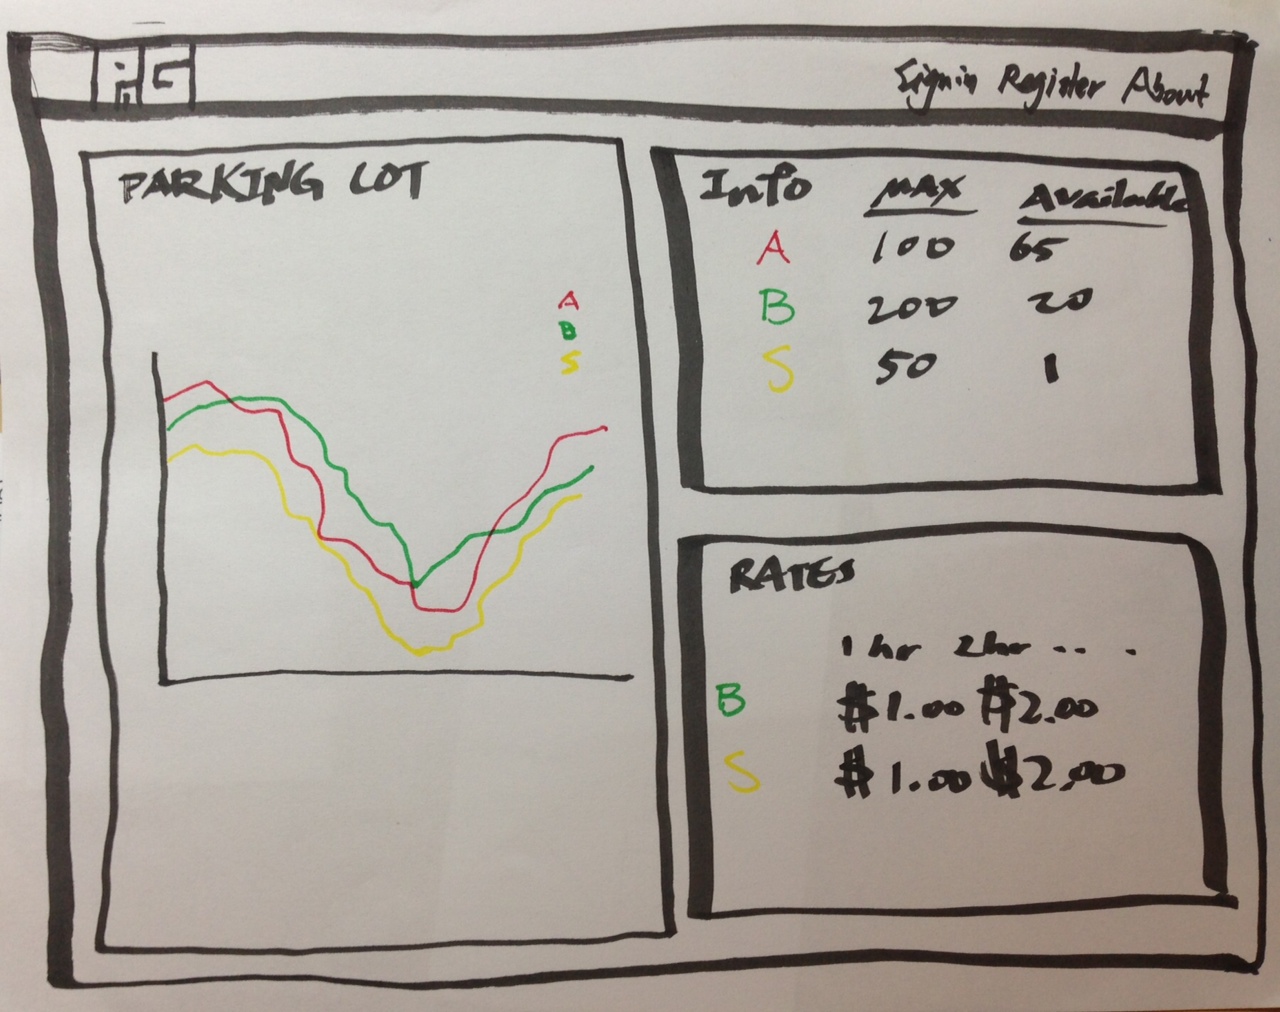 Signin Register About
PARKING LOT
A
B
S
Info MAX Available
A 100 65
B 200 20
S 50 1
RATES
1 hr 2hr .. .
B $1.00 $2.00
S $1.00 $2.00